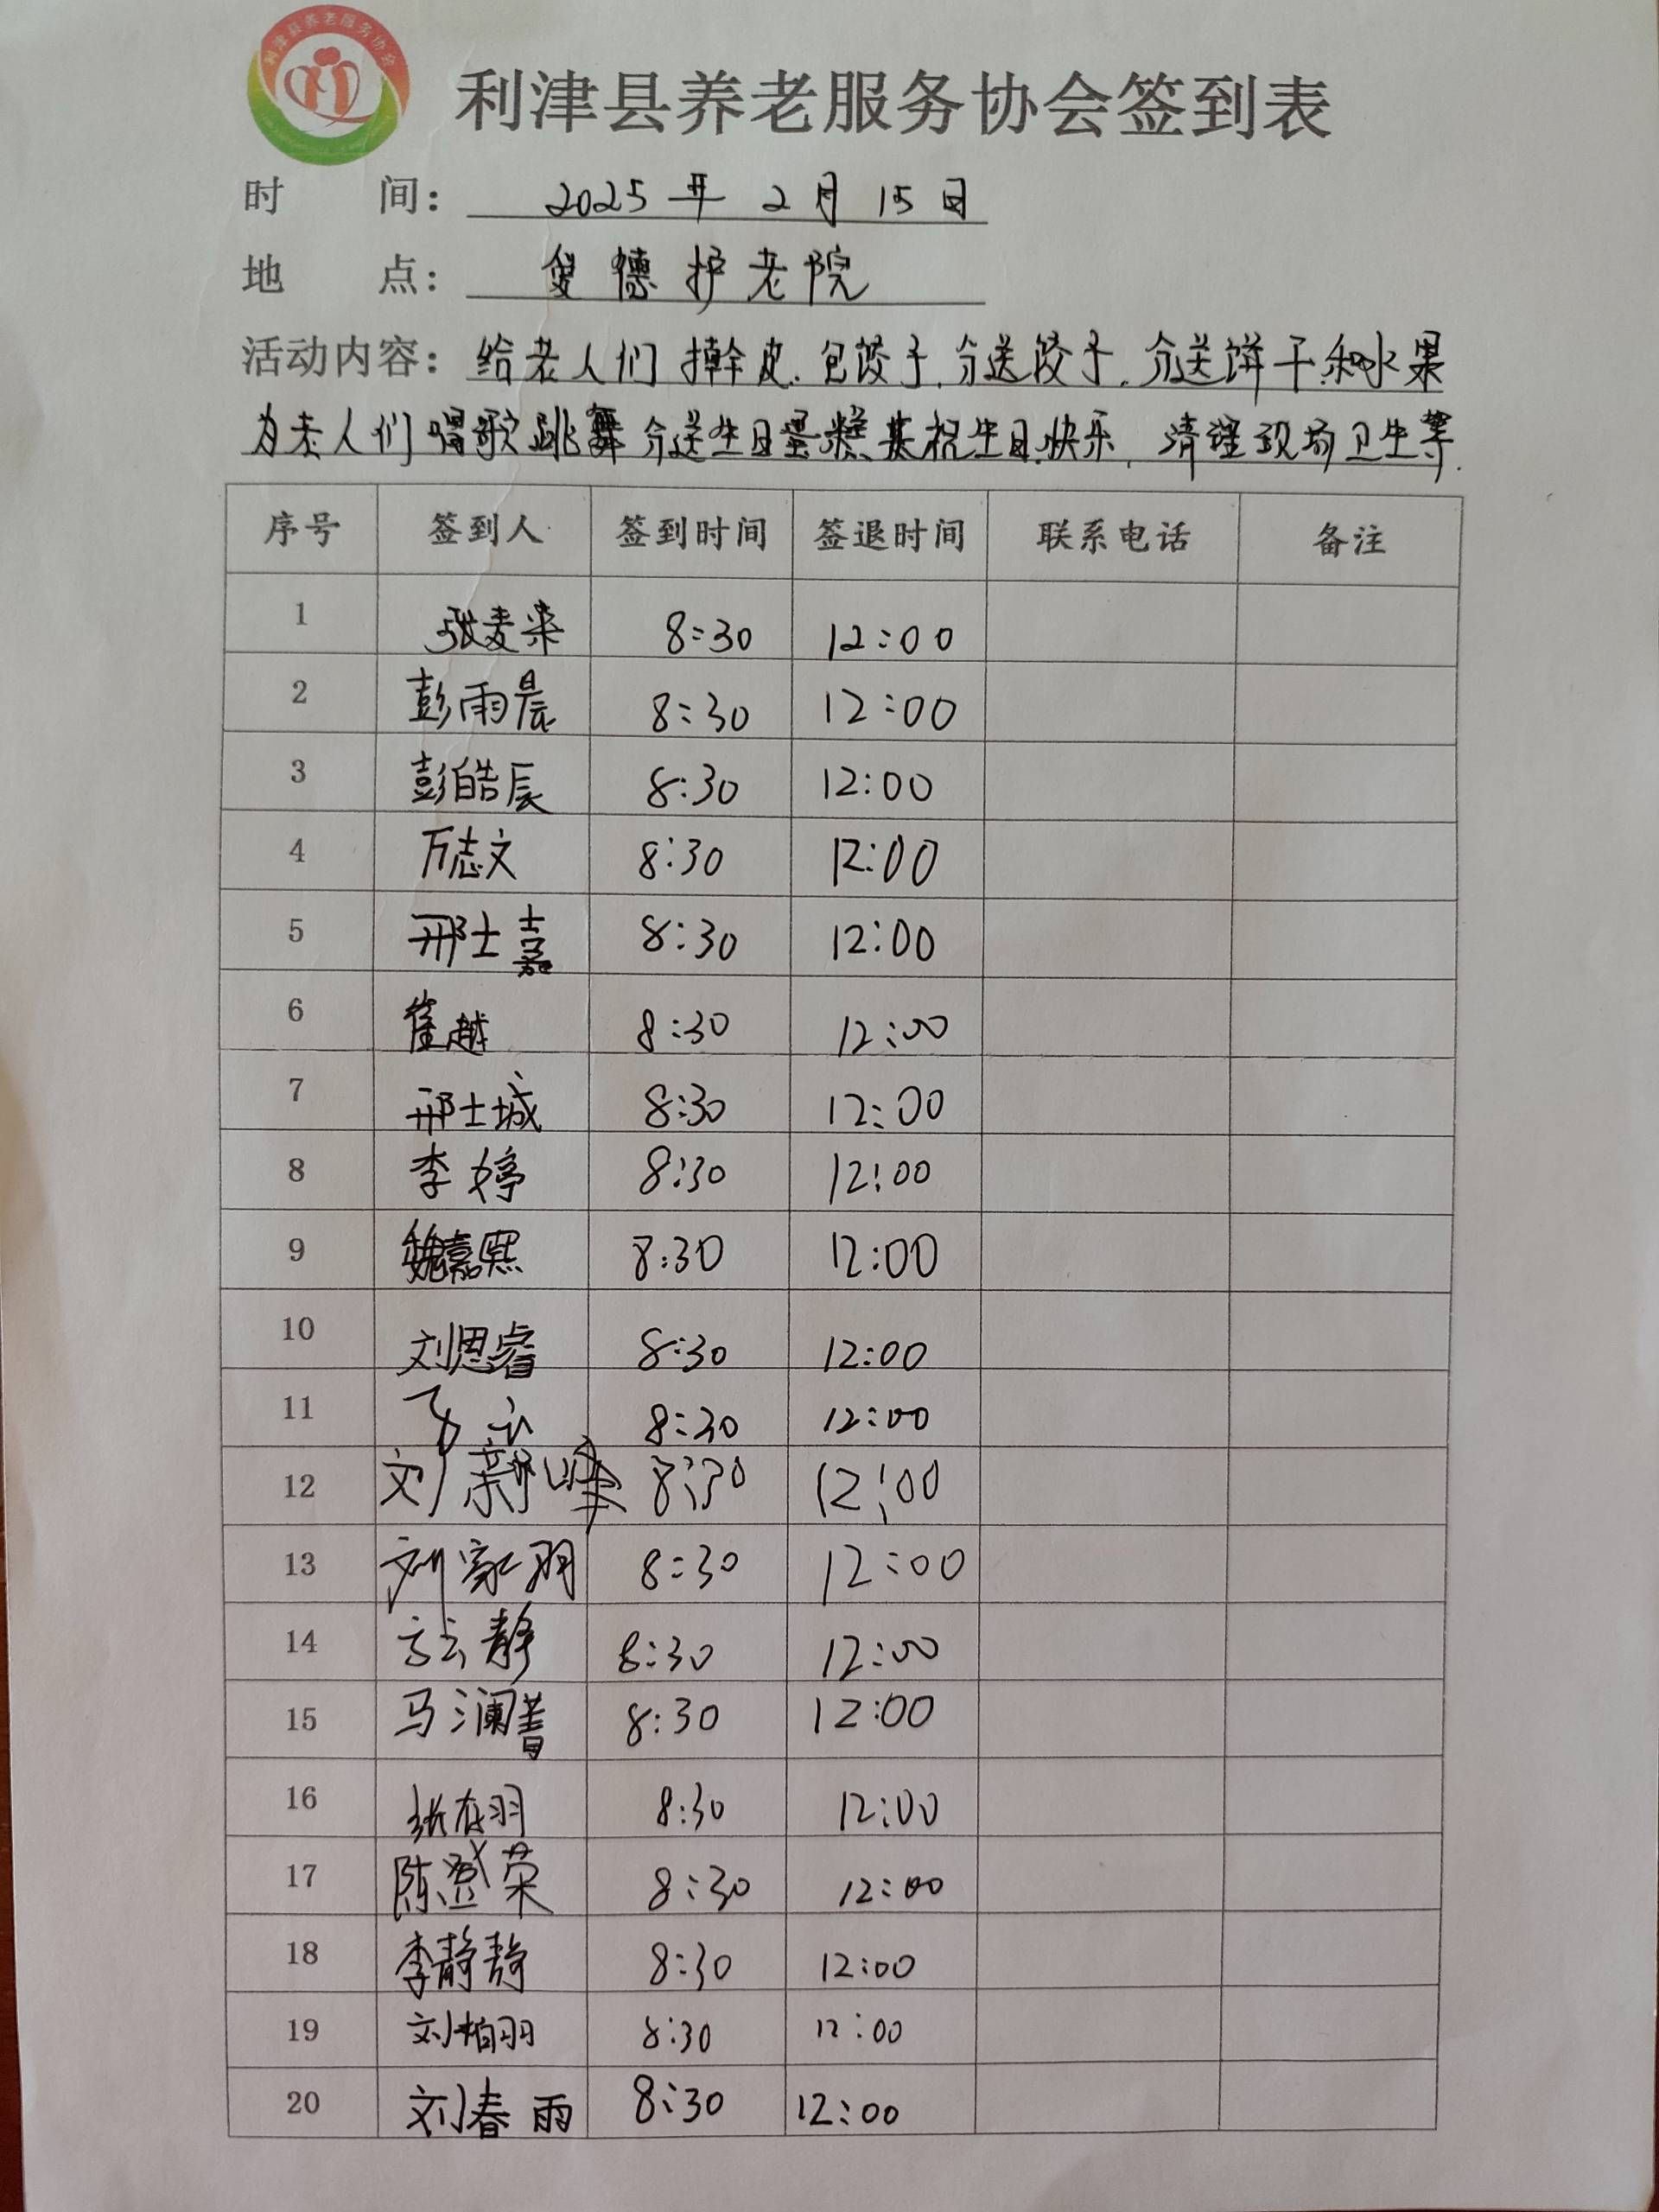 利津县养老服务协会
利津县养老服务协会签到表
时 间: 2025年2月15日
地 点: 德护老院
活动内容: 给老人们擀皮.包饺子.分送饺子.分送饼干和水果
为老人们唱歌跳舞分送生日蛋糕共祝生日快乐,清理现场卫生等.
序号 签到人 签到时间 签退时间 联系电话 备注
1 张麦来 8:30 12:00
2 彭雨晨 8:30 12:00
3 彭皓辰 8:30 12:00
4 万志文 8:30 12:00
5 邢士嘉 8:30 12:00
6 崔越 8:30 12:00
7 邢士城 8:30 12:00
8 李婷 8:30 12:00
9 魏嘉熙 8:30 12:00
10 刘思睿 8:30 12:00
11 8:30 12:00
12 刘新峰 8:30 12:00
13 刘家羽 8:30 12:00
14 静 8:30 12:00
15 马澜菁 8:30 12:00
16 张存羽 8:30 12:00
17 陈登荣 8:30 12:00
18 李静静 8:30 12:00
19 刘柏羽 8:30 12:00
20 刘春雨 8:30 12:00